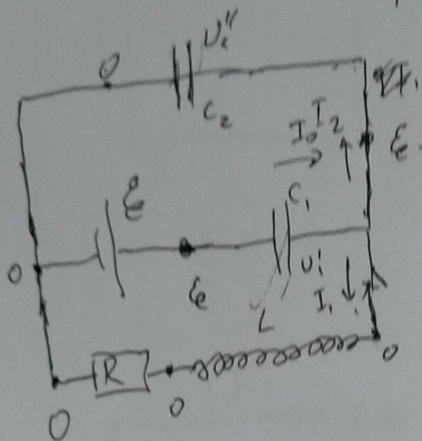 0 U₁''
C₂
I₀ I₂
ℰ
ℰ
C₁
0
ℰ
U₁'
L
I₁
R
0
0
0